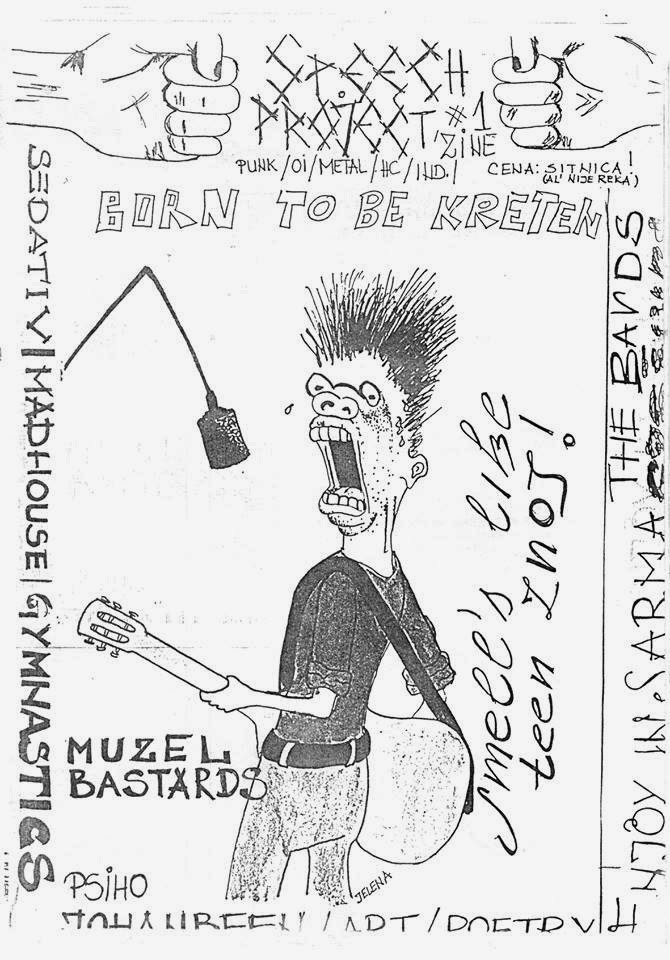 SPEECH
PROJECT #1
'ZINE
PUNK/OI/METAL/HC/IND.
CENA: SITNICA!
(AL' NIJE REKA)
BORN TO BE KRETEN
SEDATIV/MADHOUSE/GYMNASTICS
THE BARDS
smell's like
teen znoj!
ENJOY IN SARMA
MUZEL
BASTARDS
PSIHO
/ART/POETRY/
JELENA